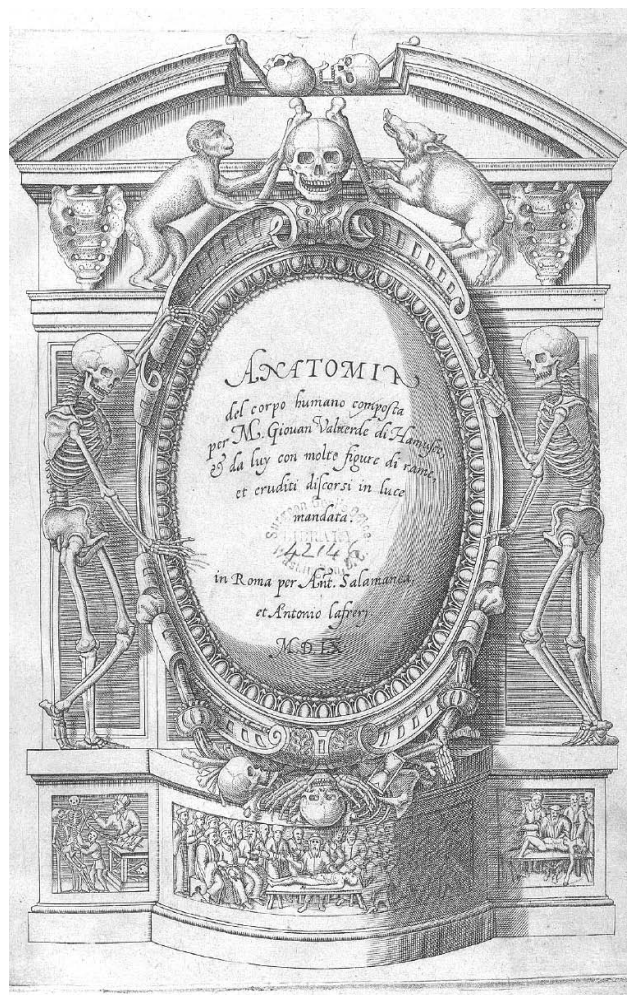 ANATOMIA
del corpo humano composta
per M. Giouan Valuerde di Hamusco,
& da luy con molte figure di rame,
et eruditi discorsi in luce
mandata.
42146
in Roma per Ant. Salamanca,
et Antonio lafreri
M.D.LX